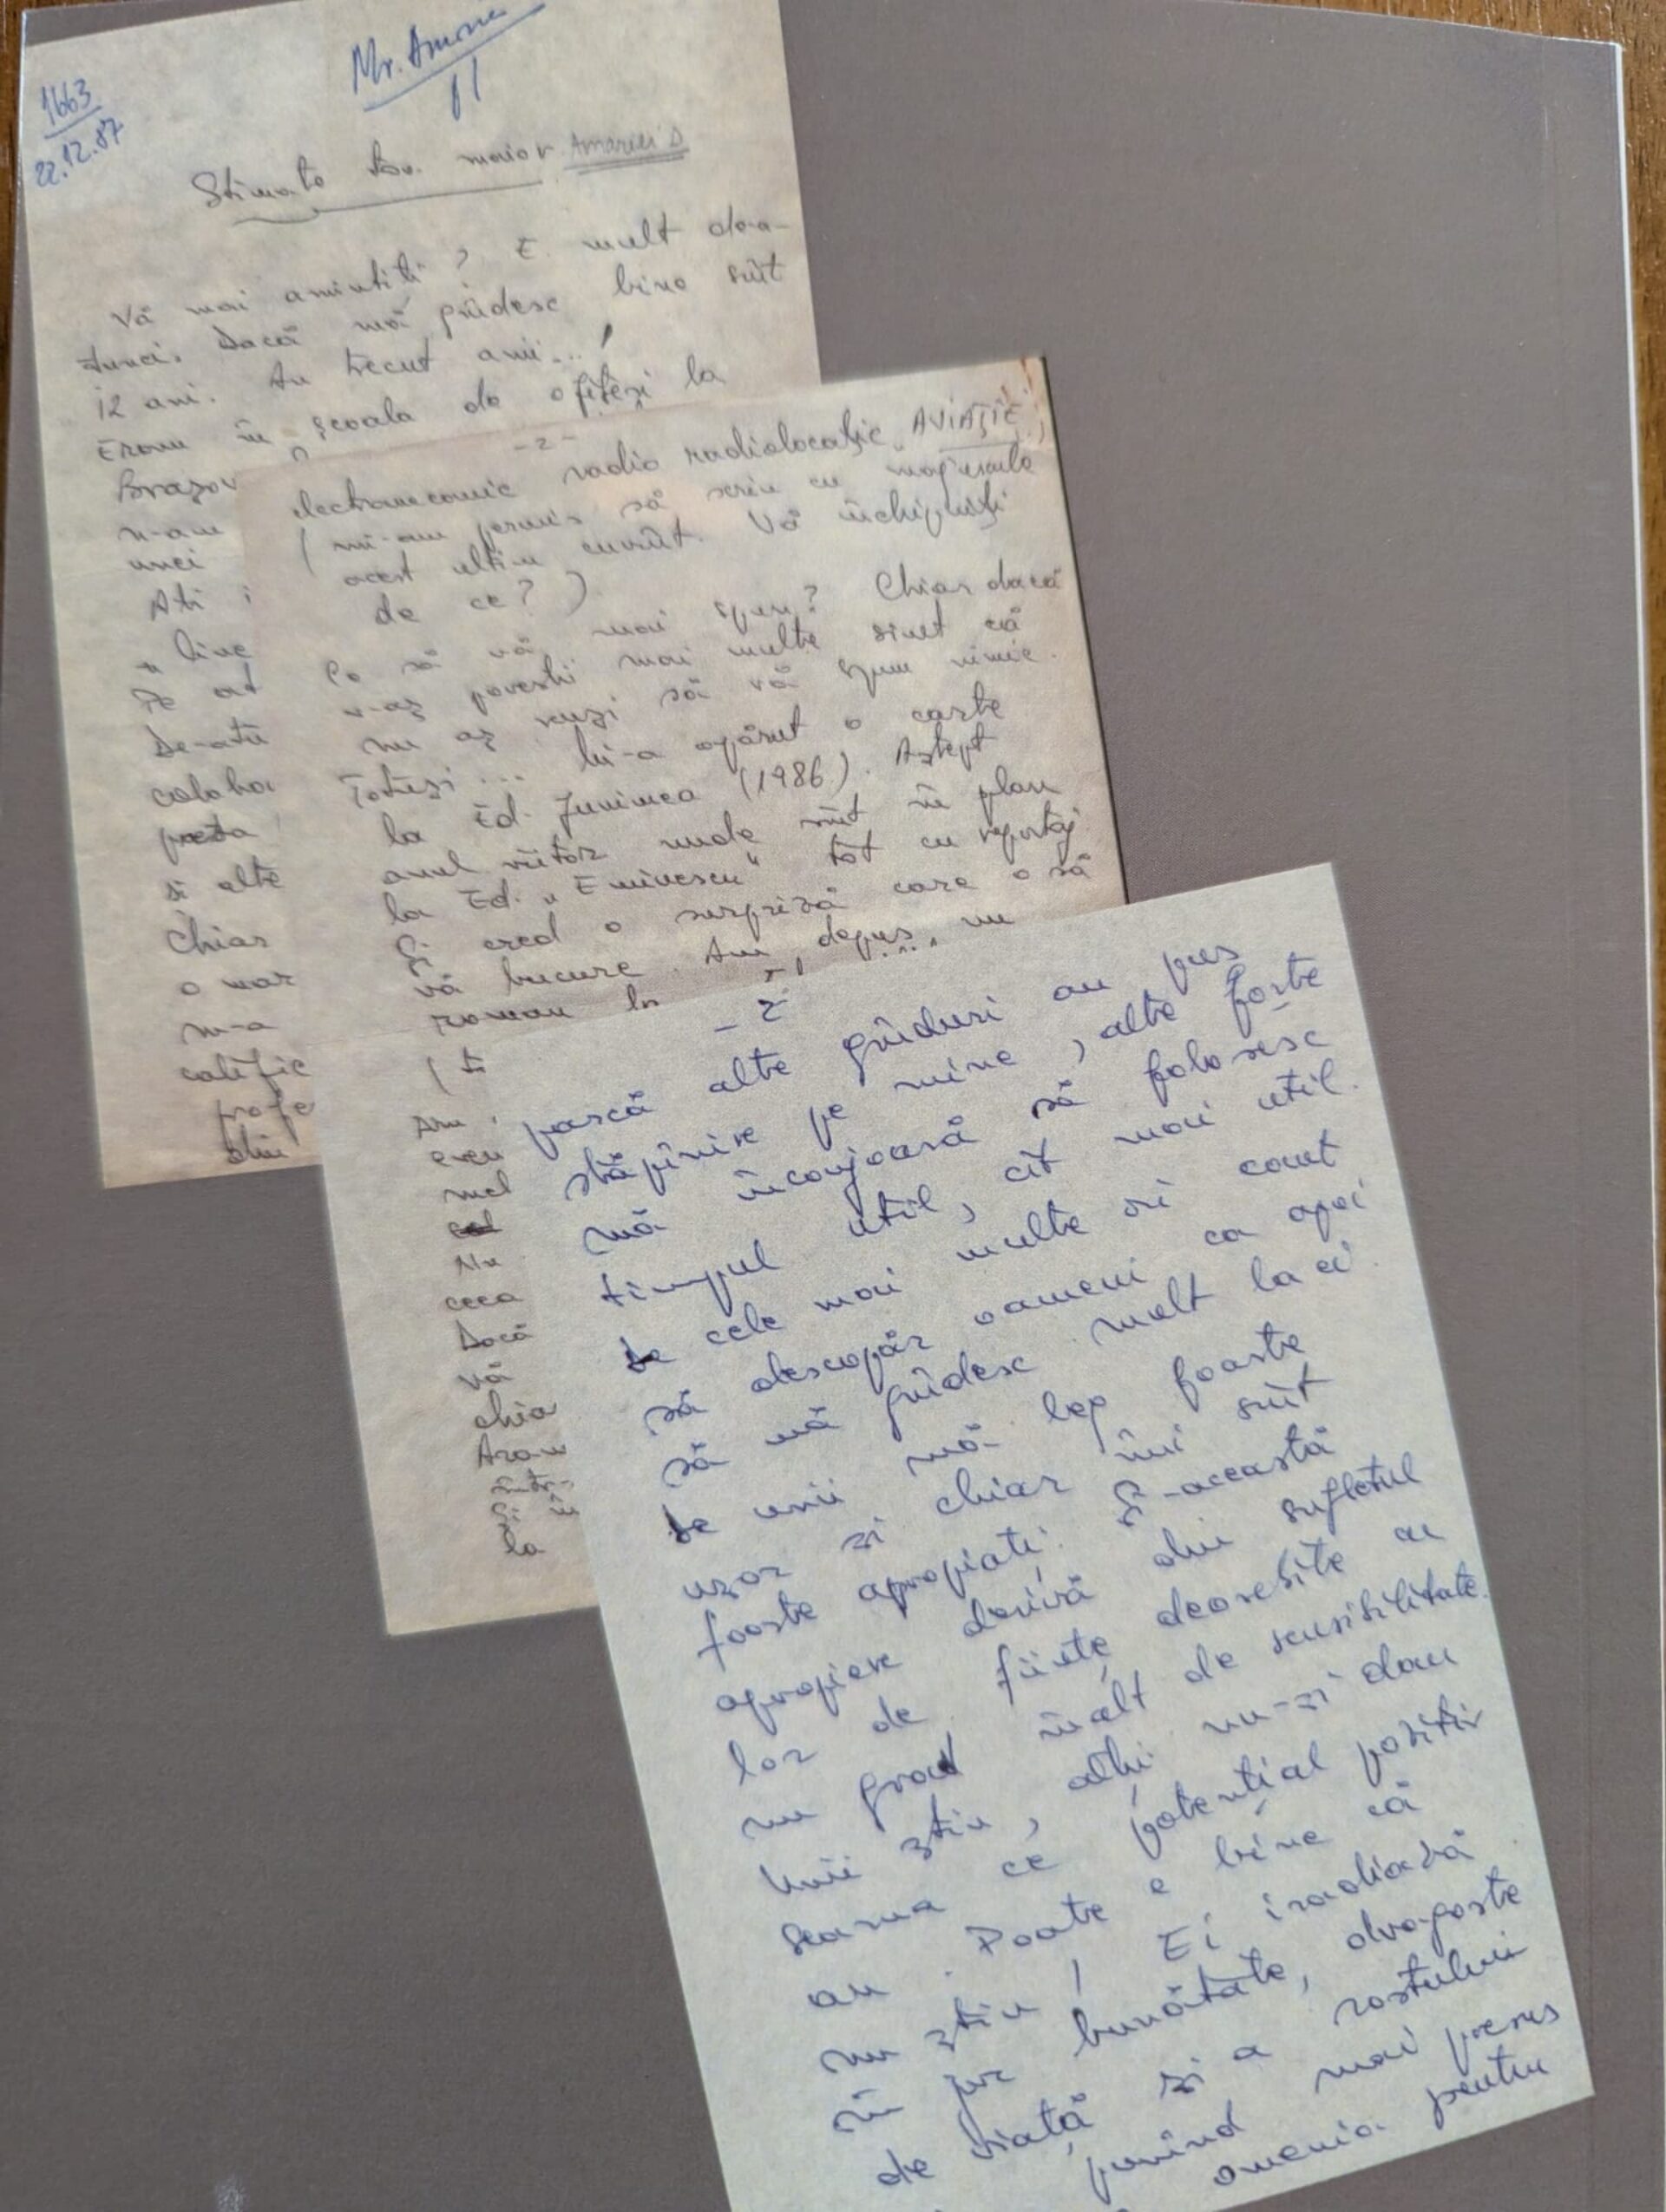 1663
22.12.87
Mr. Amarie
Stimate tov. maior Amariei D
Vă mai amintiți? E mult de-a-
tunci. Dacă mă gîndesc bine sînt
12 ani. Au trecut anii...!
Eram în școala de ofițeri la
Brașov
n-am
unei
Ati i
„ line
Pe at
De-atu
colabor
presa
și alte
Chiar
o mar
m-a
califi
profe
din
- 2 -
electromecanic radio radiolocație „AVIAȚIE”,
(mi-am permis să scriu cu majuscule
acest ultim cuvînt. Vă închipuiți
de ce?)
Ce să vă mai spun? Chiar dacă
v-aș povesti mai multe simt că
nu aș reuși să vă spun nimic.
Totuși... Mi-a apărut o carte
la Ed. Junimea (1986). Aștept
anul viitor unde sînt în plan
la Ed. „Eminescu” tot cu reportaj
Și cred o surpriză care o să
vă bucure. Am depus un
roman la
(t
Am
even
mel
Nu
ceea
Dacă
vă
chia
Aro
într-
Și în
la
- 2 -
pască alte gînduri au pus
stăpînire pe mine, alte forțe
mă înconjoară să folosesc
timpul util, cît mai util.
De cele mai multe ori caut
să descopăr oameni ca apoi
să mă gîndesc mult la ei.
De unii mă leg foarte
ușor și chiar îmi sînt
foarte apropiați. Ș-această
apropiere derivă din sufletul
lor de ființe deosebite cu
un grad înalt de sensibilitate.
Unii știu, alții nu-și dau
seama ce potențial pozitiv
au. Poate e bine că
nu știu! Ei iradiază
în jur bunătate, dragoste
de viață și a rostului
punînd mai presus
omenia pentru